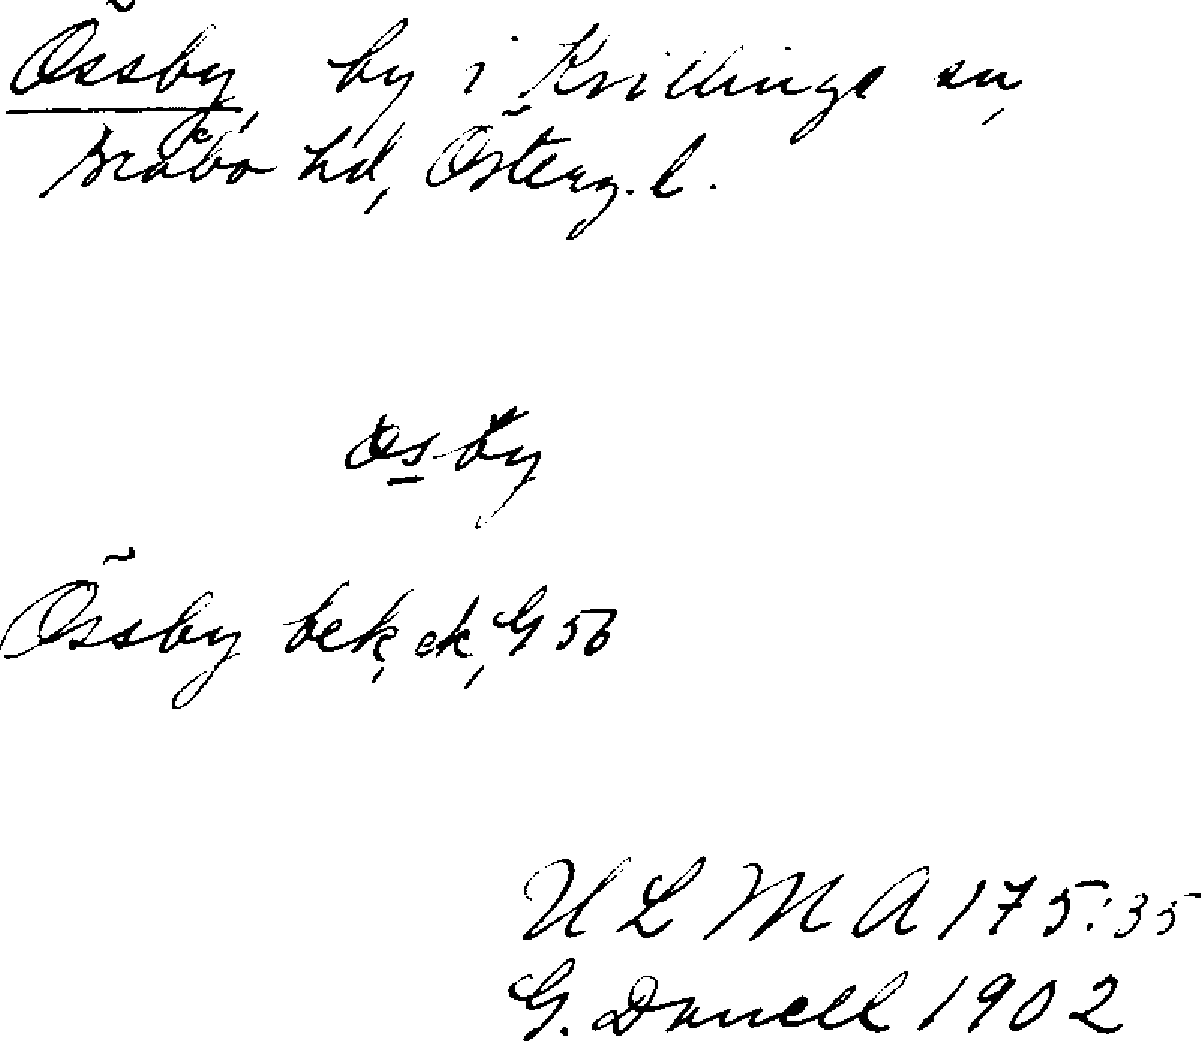 Össby, by i Kvillinge sn,
Bråbo hd, Österg. l.
ɷs-by
Össby bek, ek, G 56
ULMA 175:35
G. Danell 1902